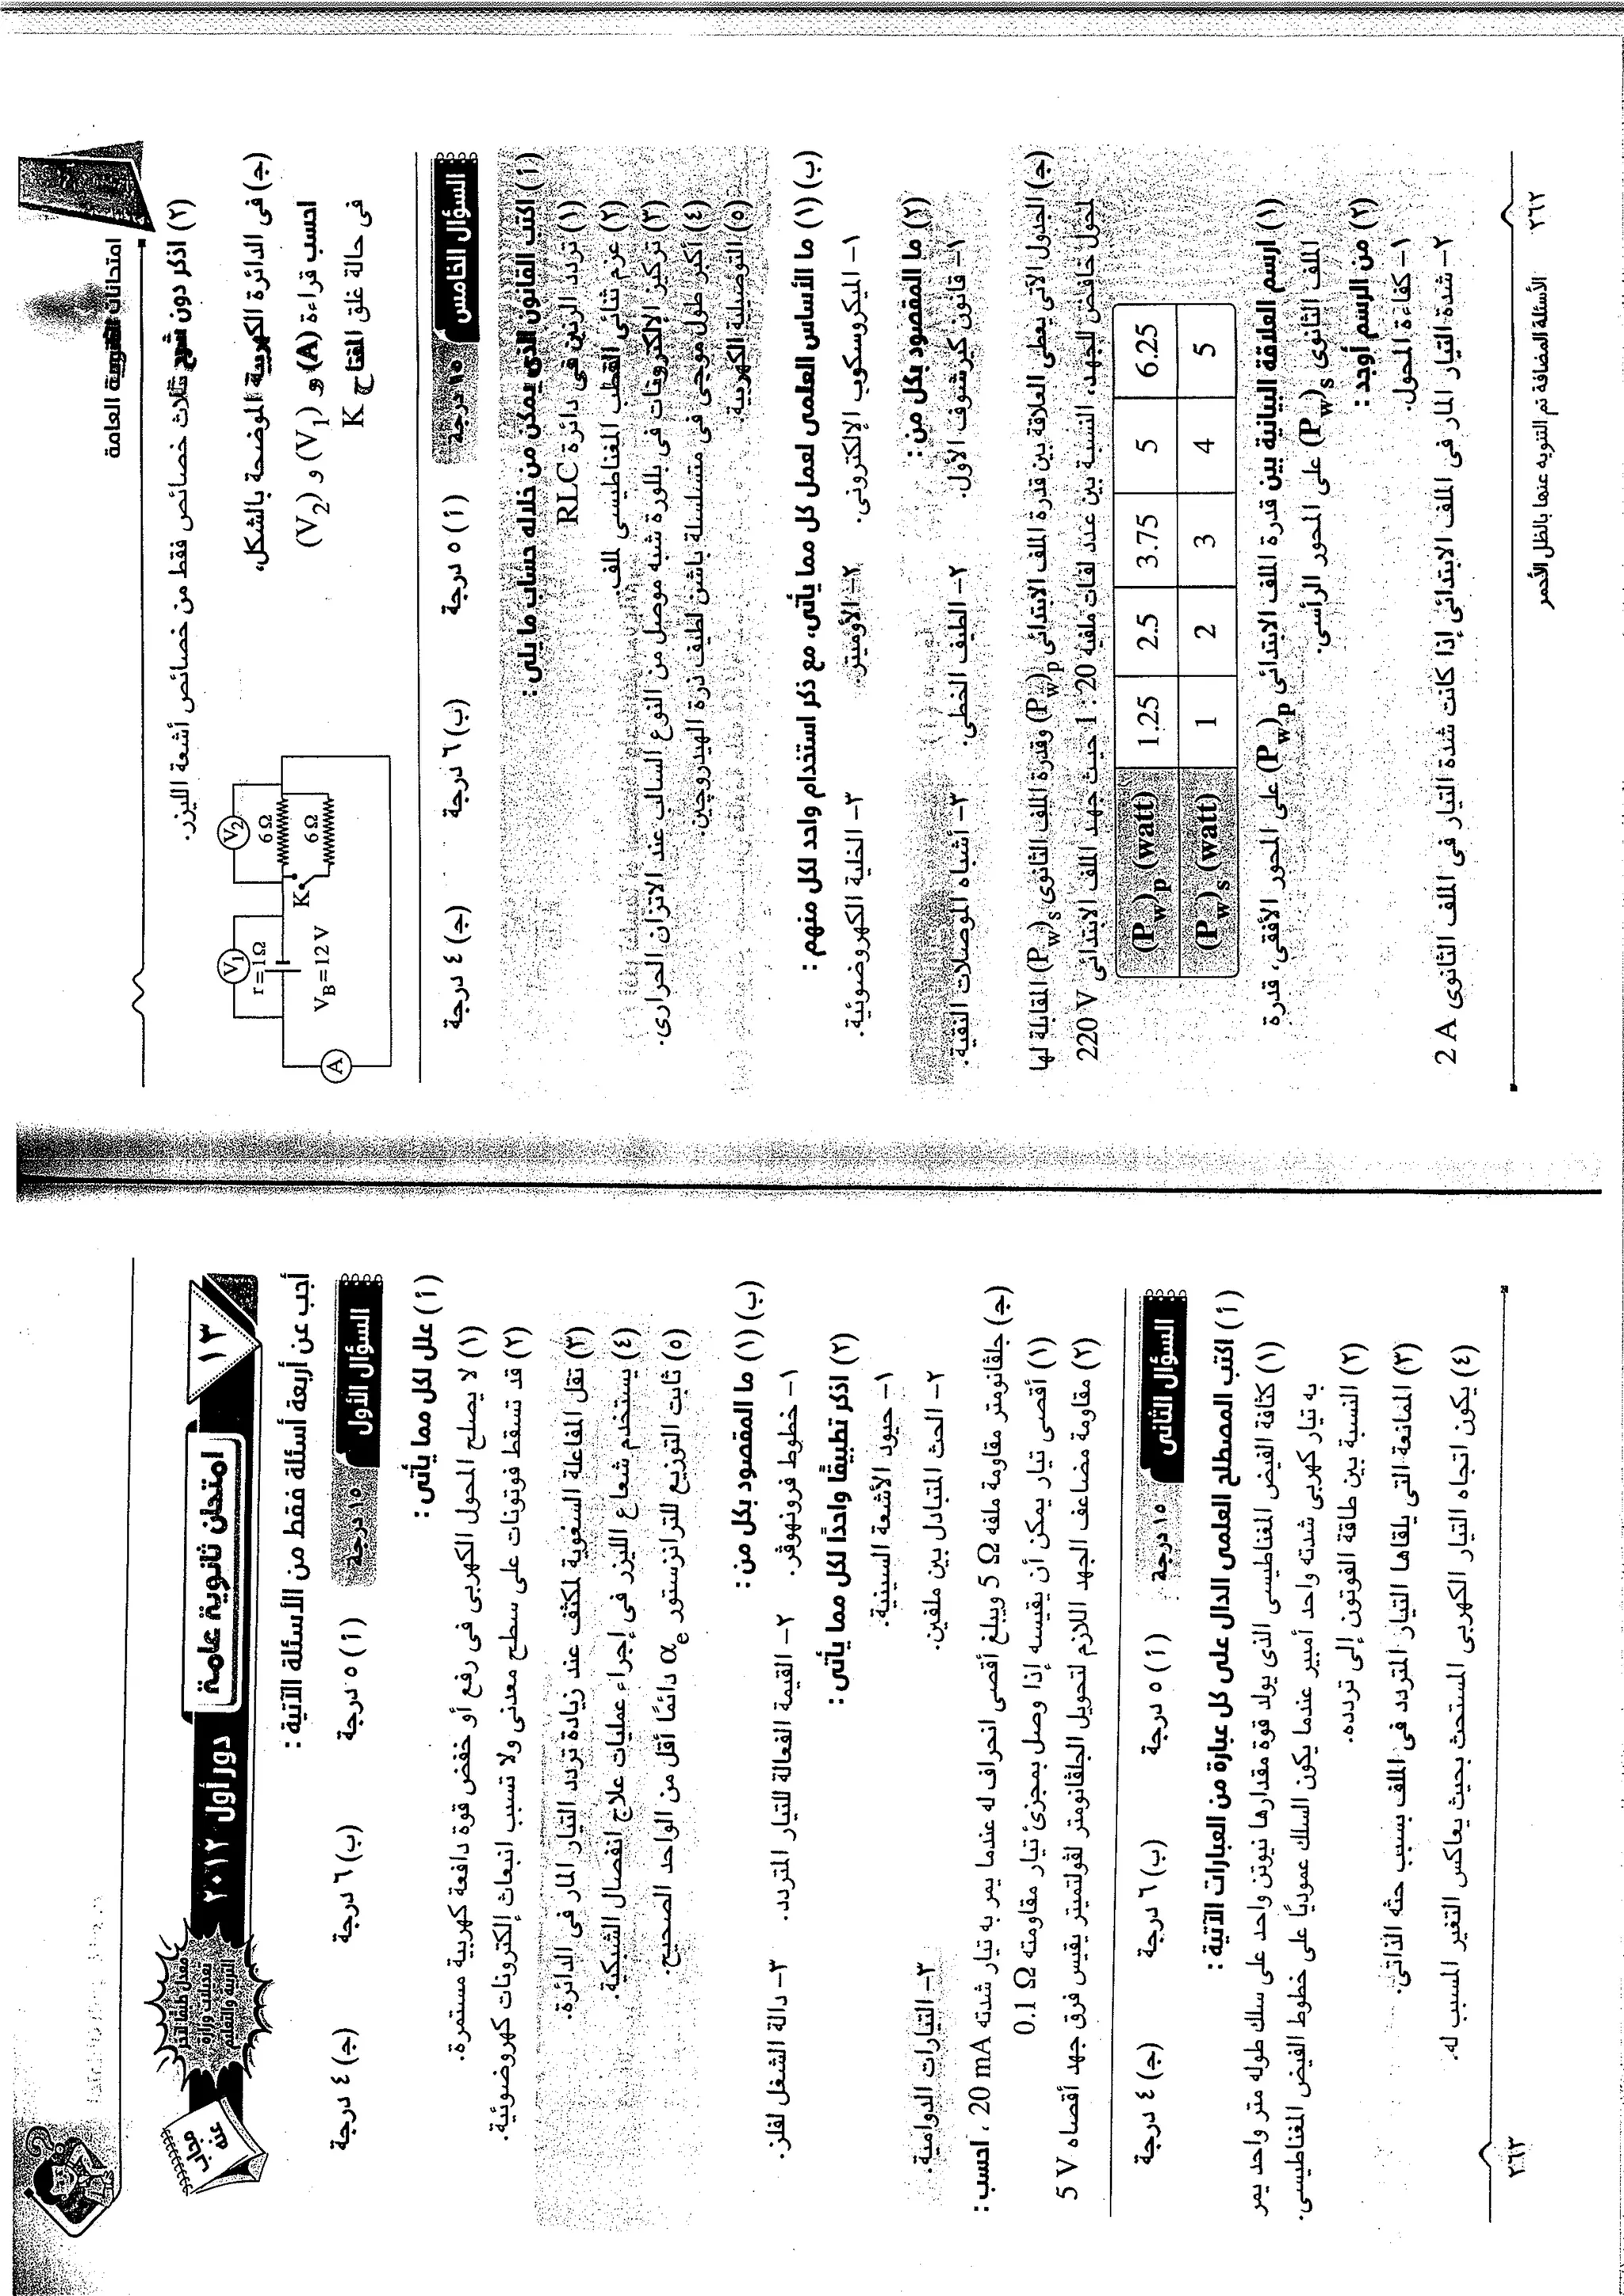 امتحانات الثانوية العامة
(٢) اذكر دون شرح ثلاث خصائص فقط من خصائص أشعة الليزر.
(جـ) فى الدائرة الكهربية الموضحة بالشكل،
احسب قراءة (A) و (V1) و (V2)
فى حالة غلق المفتاح K
V1
r=1Ω
VB=12 V
K
V2
6 Ω
6 Ω
A
السؤال الخامس
١٥ درجة
(أ) ٥ درجة (ب) ٦ درجة (جـ) ٤ درجة
(أ) اكتب القانون الذى يمكن من خلاله حساب ما يلى :
(١) تردد الرنين فى دائرة RLC
(٢) عزم ثنائى القطب المغناطيسى لملف.
(٣) تركيز الإلكترونات فى بللورة شبه موصل من النوع السالب عند الاتزان الحرارى.
(٤) أكبر طول موجى فى متسلسلة باشن لطيف ذرة الهيدروجين.
(٥) التوصيلية الكهربية.
(ب) (١) ما الأساس العلمى لعمل كل مما يأتى، مع ذكر استخدام واحد لكل منهم :
١- الميكروسكوب الإلكترونى. ٢- الأوميتر. ٣- الخلية الكهروضوئية.
(٢) ما المقصود بكل من :
١- قانون كيرشوف الأول. ٢- الطيف الخطى. ٣- أشباه الموصلات النقية.
(جـ) الجدول الآتى يعطى العلاقة بين قدرة الملف الابتدائى (Pw)p وقدرة الملف الثانوى (Pw)s المقابلة لها
لمحول خافض للجهد، النسبة بين عدد لفات ملفيه 20 : 1 حيث جهد الملف الابتدائى 220 V
(Pw)p (watt) 1.25 2.5 3.75 5 6.25
(Pw)s (watt) 1 2 3 4 5
(١) ارسم العلاقة البيانية بين قدرة الملف الابتدائى (Pw)p على المحور الأفقى، قدرة
الملف الثانوى (Pw)s على المحور الرأسى.
(٢) من الرسم أوجد :
١- كفاءة المحول.
٢- شدة التيار المار فى الملف الابتدائى إذا كانت شدة التيار فى الملف الثانوى 2 A
الأسئلة المضافة تم التنويه عنها بالظل الأحمر
٢٦٢
١٣
امتحان ثانوية عامة
دور أول ٢٠١٢
معدل طبقًا لآخر
تعديلات وزارة
التربية والتعليم
مجاب
عنه
أجب عن أربعة أسئلة فقط من الأسئلة الآتية :
السؤال الأول
١٥ درجة
(أ) ٥ درجة (ب) ٦ درجة (جـ) ٤ درجة
(أ) علل لكل مما يأتى :
(١) لا يصلح المحول الكهربى فى رفع أو خفض قوة دافعة كهربية مستمرة.
(٢) قد تسقط فوتونات على سطح معدنى ولا تسبب انبعاث إلكترونات كهروضوئية.
(٣) تقل المفاعلة السعوية لمكثف عند زيادة تردد التيار المار فى الدائرة.
(٤) يستخدم شعاع الليزر فى إجراء عمليات علاج انفصال الشبكية.
(٥) ثابت التوزيع للترانزستور αe دائمًا أقل من الواحد الصحيح.
(ب) (١) ما المقصود بكل من :
١- خطوط فرونهوفر. ٢- القيمة الفعالة للتيار المتردد. ٣- دالة الشغل لفلز.
(٢) اذكر تطبيقًا واحدًا لكل مما يأتى :
١- حيود الأشعة السينية.
٢- الحث المتبادل بين ملفين. ٣- التيارات الدوامية.
(جـ) جلفانومتر مقاومة ملفه 5 Ω ويبلغ أقصى انحراف له عندما يمر به تيار شدته 20 mA ، احسب :
(١) أقصى تيار يمكن أن يقيسه إذا وصل بمجزئ تيار مقاومته 0.1 Ω
(٢) مقاومة مضاعف الجهد اللازم لتحويل الجلفانومتر لفولتميتر يقيس فرق جهد أقصاه 5 V
السؤال الثانى
١٥ درجة
(أ) ٥ درجة (ب) ٦ درجة (جـ) ٤ درجة
(أ) اكتب المصطلح العلمى الدال على كل عبارة من العبارات الآتية :
(١) كثافة الفيض المغناطيسى الذى يولد قوة مقدارها نيوتن واحد على سلك طوله متر واحد يمر
به تيار كهربى شدته واحد أمبير عندما يكون السلك عموديًا على خطوط الفيض المغناطيسى.
(٢) النسبة بين طاقة الفوتون إلى تردده.
(٣) الممانعة التى يلقاها التيار المتردد فى الملف بسبب حثه الذاتى.
(٤) يكون اتجاه التيار الكهربى المستحث بحيث يعاكس التغير المسبب له.
٢٦٣